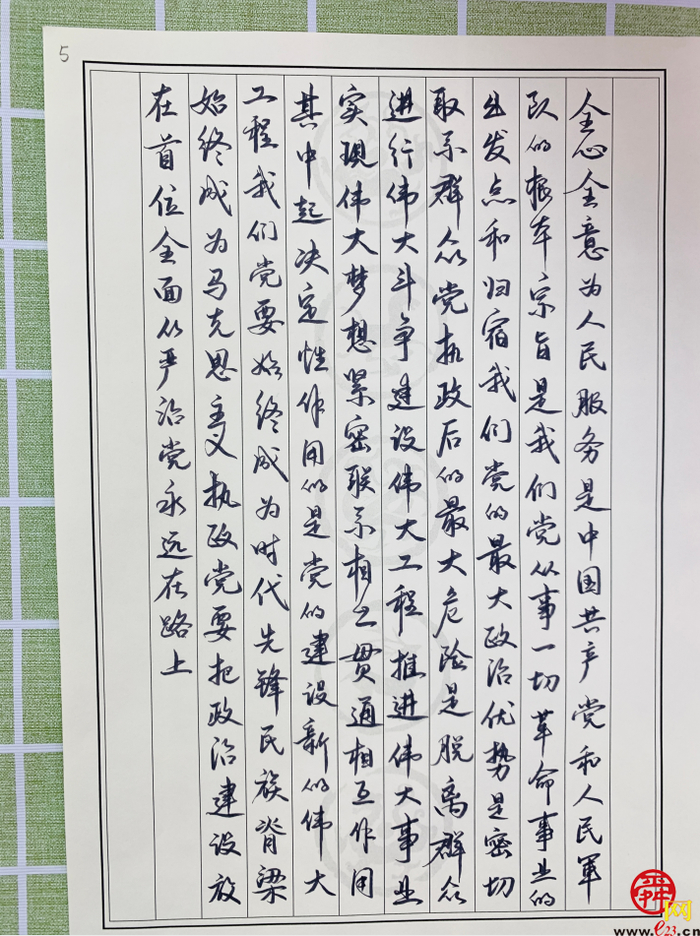 5
全心全意为人民服务是中国共产党和人民军
队的根本宗旨是我们党从事一切革命事业的
出发点和归宿我们党的最大政治优势是密切
联系群众党执政后的最大危险是脱离群众
进行伟大斗争建设伟大工程推进伟大事业
实现伟大梦想紧密联系相互贯通相互作用
其中起决定性作用的是党的建设新的伟大
工程我们党要始终成为时代先锋民族脊梁
始终成为马克思主义执政党要把政治建设放
在首位全面从严治党永远在路上
舜网
www.e23.cn